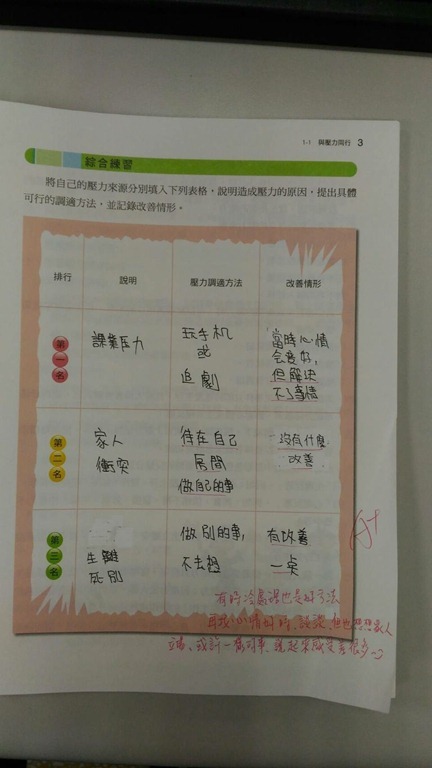 1-1 與壓力同行 3
綜合練習
將自己的壓力來源分別填入下列表格，說明造成壓力的原因，提出具體
可行的調適方法，並記錄改善情形。
排行 說明 壓力調適方法 改善情形
第一名
課業压力
玩手机
或
追劇
當時心情
会变好,
但解決
不了事情
第二名
家人
衝突
待在自己
房間
做自己的事
沒有什麼
改善
第三名
生離
死別
做別的事,
不去想
有改善
一点
A+
有時冷處理也是好方法
可找心情好時、談談,但也想想家人
立場、或許一樣的事、說起來感受差很多